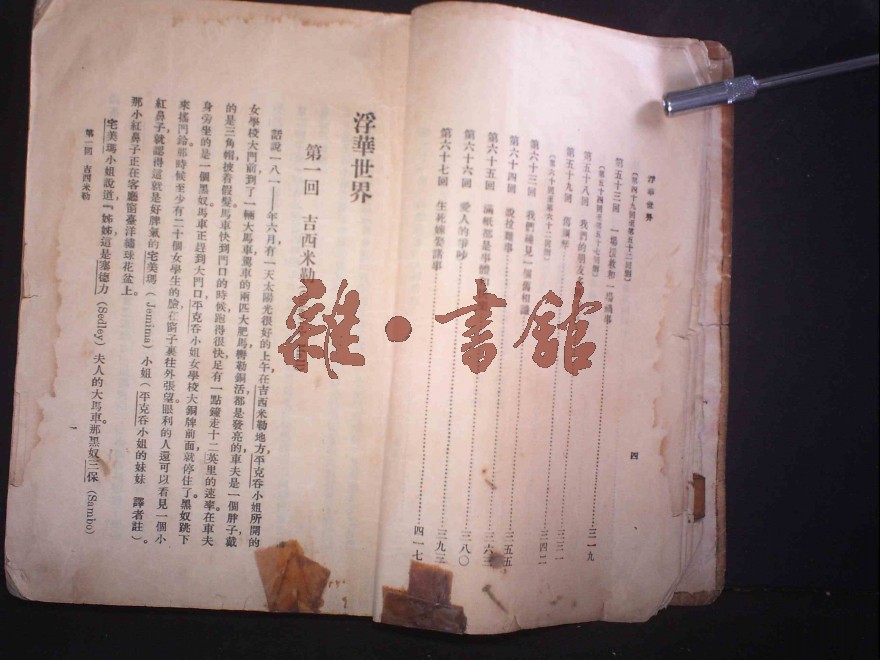 浮華世界
(第四十九回至第五十二回刪)
第五十三回 一場援救和一場禍事
(第五十四回至第五十七回刪)
第五十八回 我們的朋友 三一九
第五十九回 舊鋼琴 三三一
(第六十回至第六十二回刪)
第六十三回 我們碰見一個舊相識 三四二
第六十四回 說後離事 三五五
第六十五回 滿紙都是事體 三六三
第六十六回 愛人的爭吵 三八〇
第六十七回 生死嫁娶諸事 三九三
四一七
四
浮華世界
第一回 吉西米勒
話說一八一一年六月有一天太陽光很好的上午,在吉西米勒地方平克吞小姐所開的
女學校大門前,到了一輛大馬車,駕車的兩匹大肥馬,轡勒銅活都是發亮的,車夫是一個胖子,戴
的是三角帽,披着假髮,馬車快到門口的時候,跑得很快,足有一點鐘走十二英里的速率,在車夫
身旁坐的是一個黑奴,馬車正趕到大門口,平克吞小姐女學校大銅牌前面就停住了,黑奴跳下
來搖門鈴,那時候至少有二十個女學生的臉,在窗子裏往外張望,眼利的人還可以看見一個小
紅鼻子,就認得這就是好脾氣的宅美瑪(Jemima)小姐(平克吞小姐的妹妹 譯者註)。
那小紅鼻子正在客廳窗臺洋繡球花盆上。
宅美瑪小姐說道,『姊姊,這是塞德力(Sedley)夫人的大馬車。那黑奴三保(Sambo)
第一回 吉西米勒
一
雜·書館